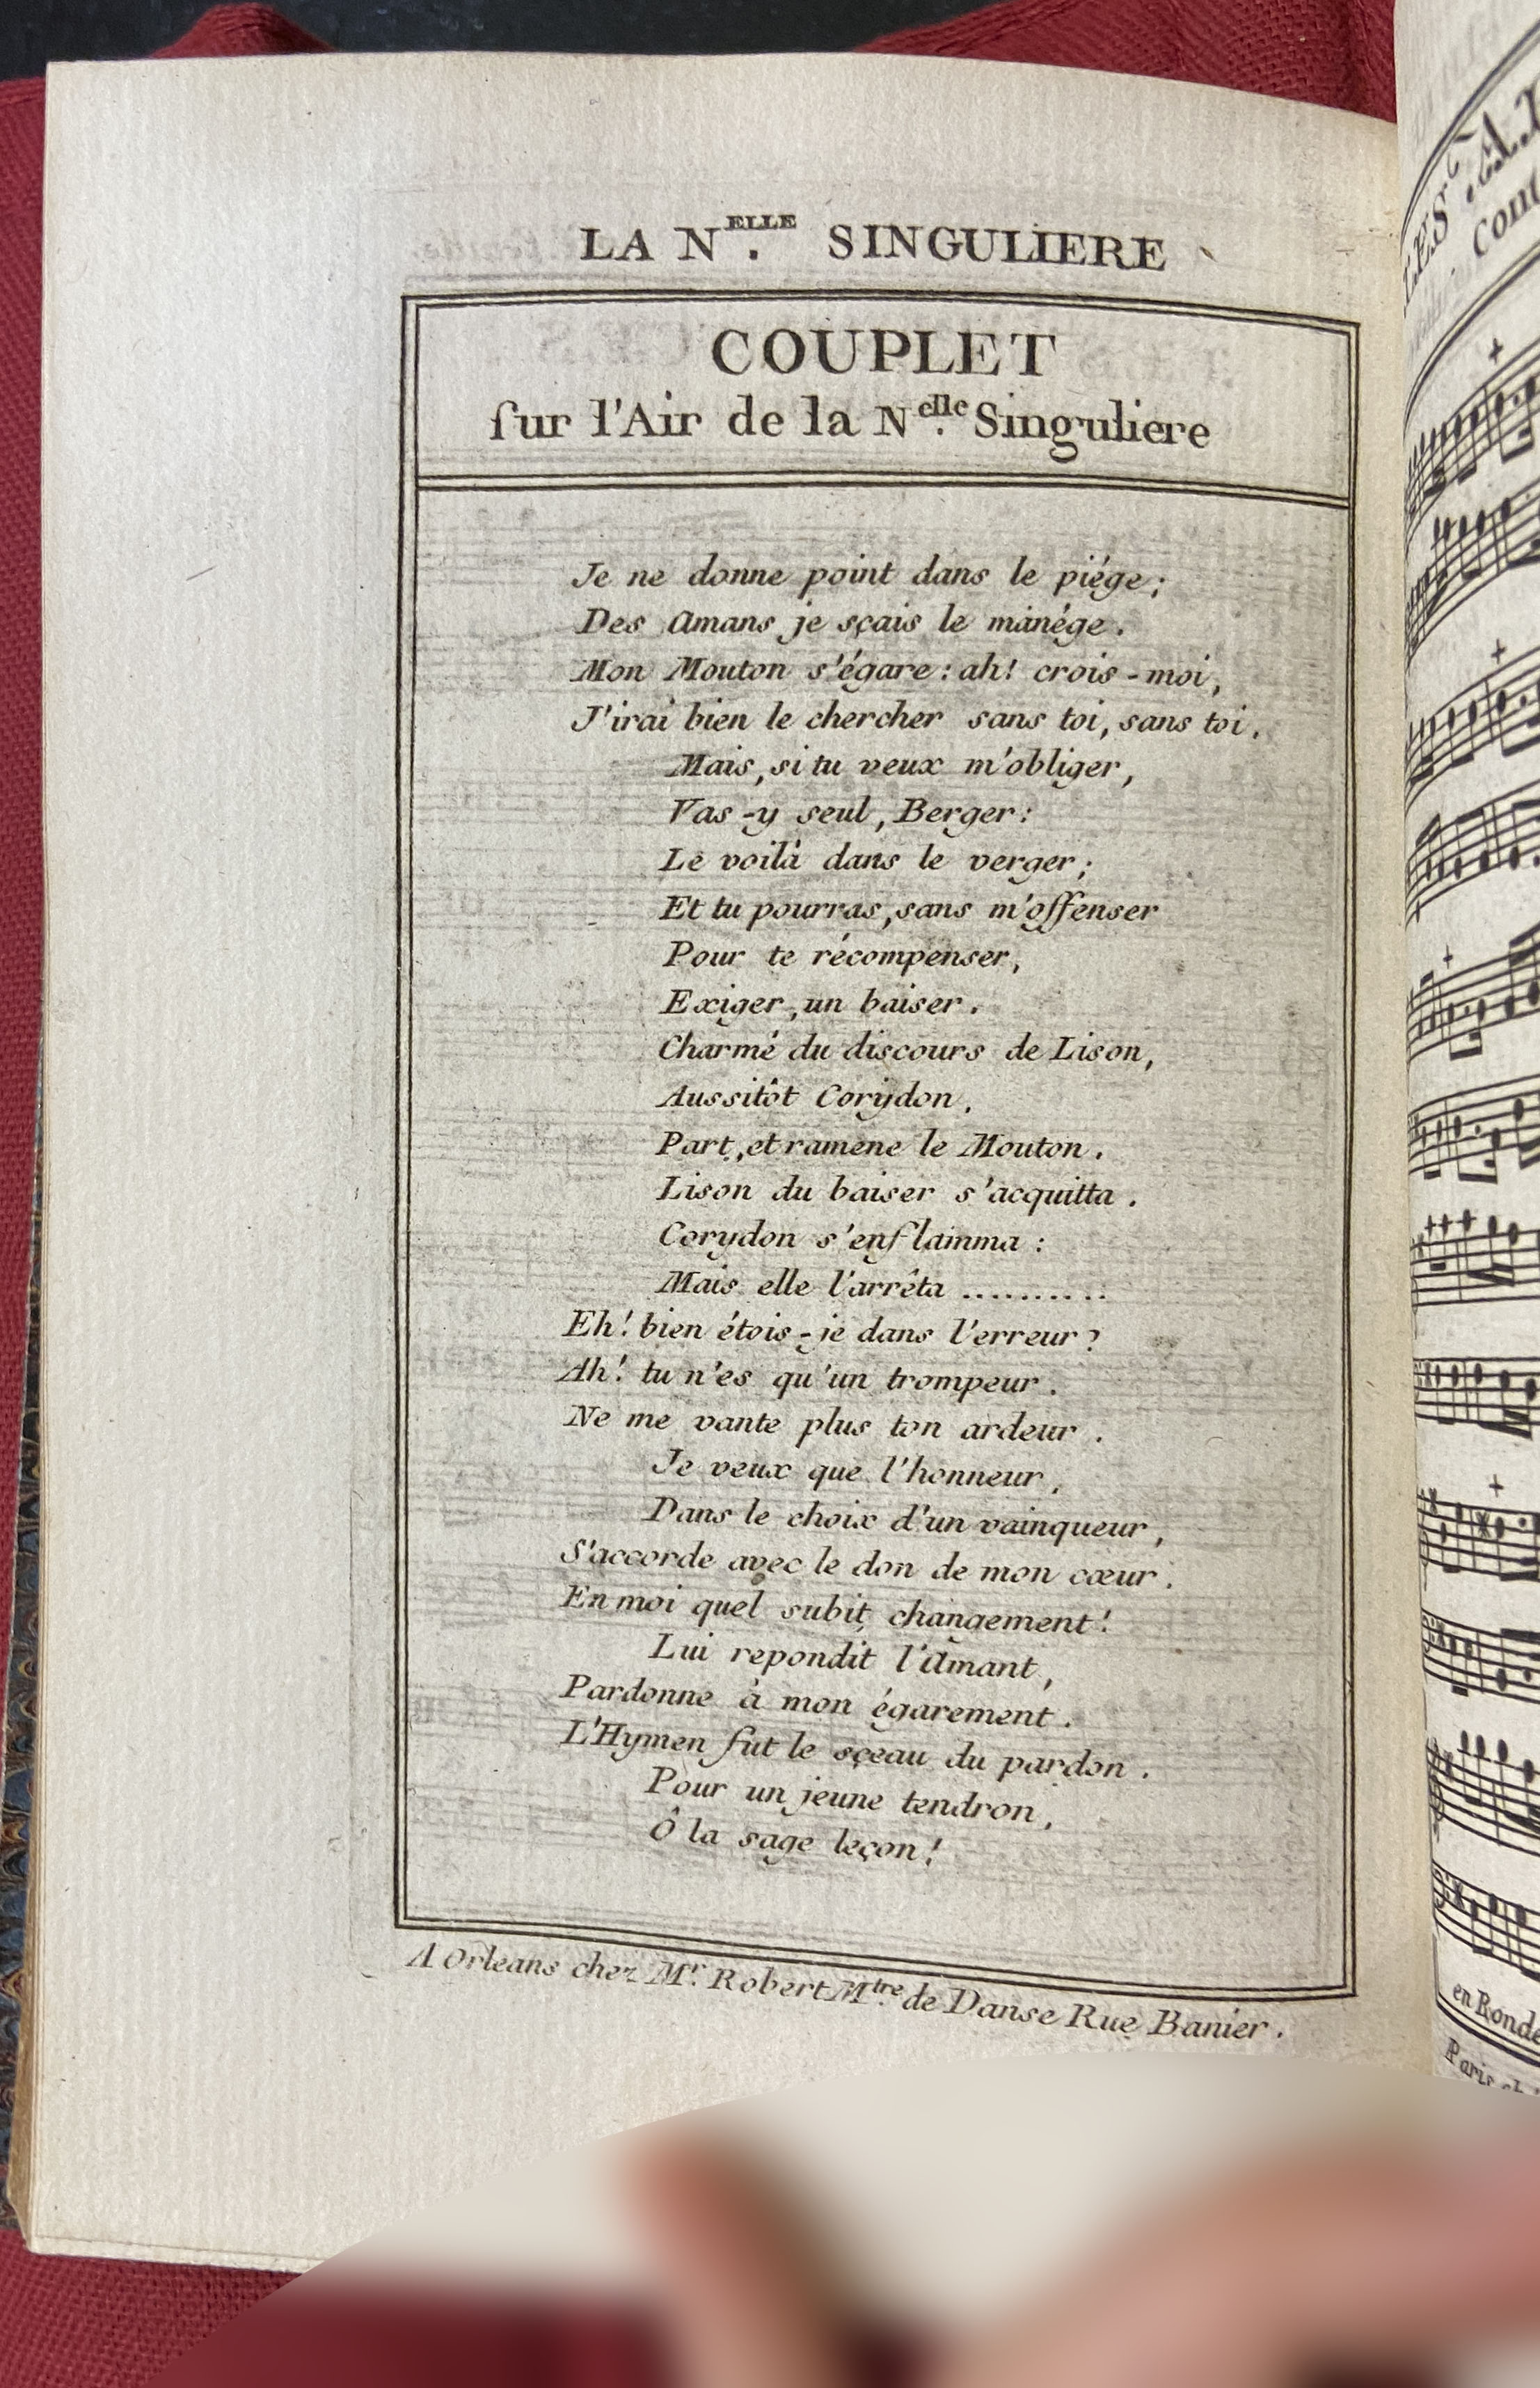 LA N.ELLE SINGULIERE
COUPLET
sur l'Air de la N.elle Singuliere
Je ne donne point dans le piége;
Des Amans je sçais le manége.
Mon Mouton s'égare: ah! crois-moi,
J'irai bien le chercher sans toi, sans toi.
Mais, si tu veux m'obliger,
Vas-y seul, Berger:
Le voilà dans le verger;
Et tu pourras, sans m'offenser
Pour te récompenser,
Exiger, un baiser.
Charmé du discours de Lison,
Aussitôt Corydon,
Part, et ramene le Mouton.
Lison du baiser s'acquitta.
Corydon s'enflamma:
Mais elle l'arrêta ..........
Eh! bien étois-je dans l'erreur?
Ah! tu n'es qu'un trompeur.
Ne me vante plus ton ardeur.
Je veux que l'honneur,
Dans le choix d'un vainqueur,
S'accorde avec le don de mon cœur.
En moi quel subit changement!
Lui repondit l'Amant,
Pardonne à mon égarement.
L'Hymen fut le sçeau du pardon.
Pour un jeune tendron,
Ô la sage leçon!
A Orleans chez Mr. Robert Mtre. de Danse Rue Banier.
LES
en Ronde
Paris